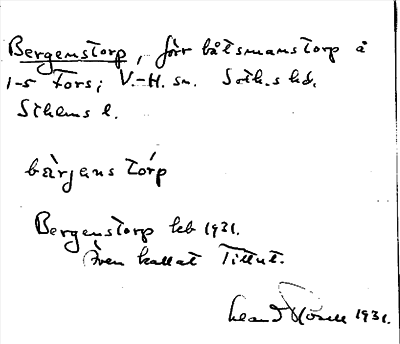 Bergenstorp, förr båtsmanstorp å
1-5 Fors; V.-H. sn. Soth.s hd.
Sthlms l.
bärjans tórp
Bergenstorp hb 1931.
Även kallat Tittut.
1931.